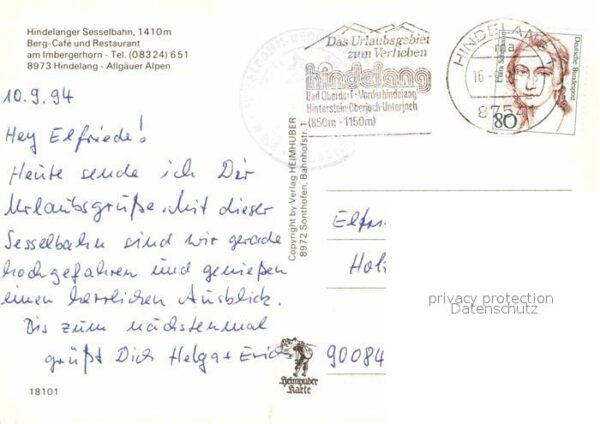 Hindelanger Sesselbahn, 1410m
Berg-Café und Restaurant
am Imbergerhorn - Tel. (08324) 651
8973 Hindelang - Allgäuer Alpen
10.9.94
Hey Elfriede!
Heute sende ich Dir
Urlaubsgrüße. Mit dieser
Sesselbahn sind wir gerade
hochgefahren und genießen
einen herrlichen Ausblick.
Bis zum nächstenmal
grüßt Dich Helga + Erich
18101
Copyright by Verlag HEIMHUBER
8972 Sonthofen, Bahnhofstr. 1
Das Urlaubsgebiet
zum Verlieben
hindelang
Bad Oberdorf-Vorderhindelang
Hinterstein-Oberjoch-Unterjoch
(850m - 1150m)
HINDELANG 1
ma
16.-9
87541
Clara Schumann
Deutsche Bundespost
80
Elfr
Hol
90084
privacy protection
Datenschutz
Heimhuber
Karte